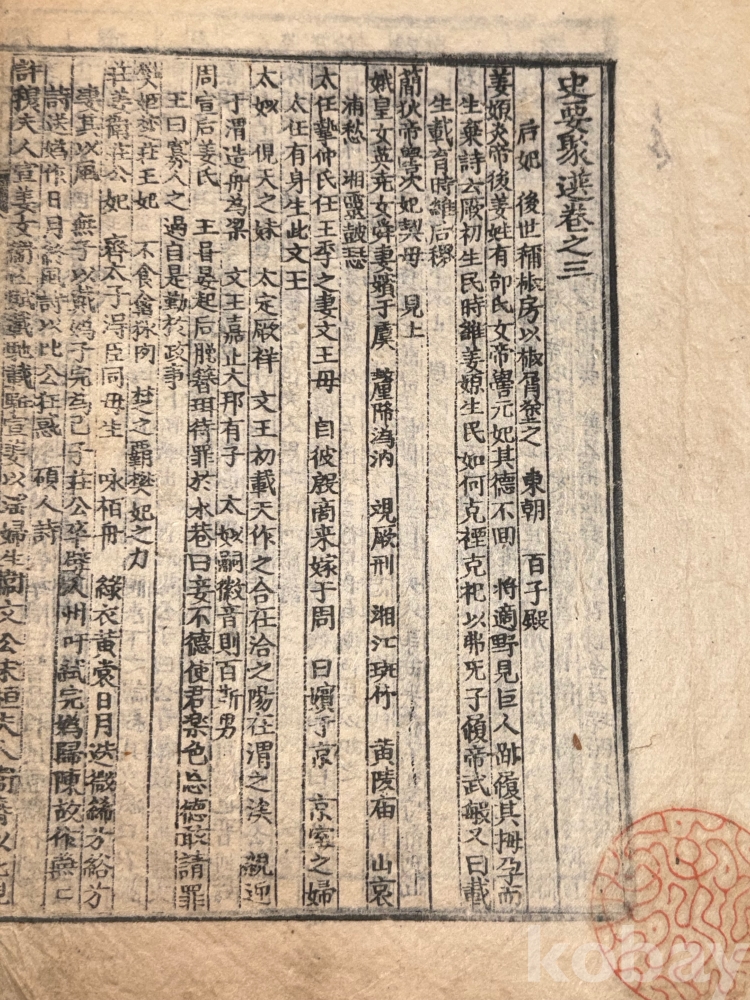 史要聚選卷之三
后妃 後世稱椒房以椒屑塗之 東朝 百子殿
姜嫄炎帝後姜姓有邰氏女帝嚳元妃其德不回 將適野見巨人跡履其拇孕而
生棄詩云厥初生民時維姜嫄生民如何克禋克祀以弗无子履帝武敏又曰載
生載育時維后稷
簡狄帝嚳次妃契母 見上
娥皇女英堯女舜妻嬪于虞 釐降潙汭 觀厥刑 湘江斑竹 黃陵庙 山哀
浦愁 湘靈皷瑟
太任摯仲氏任王季之妻文王母 自彼殷商来嫁于周 曰嬪于京 京室之婦
太任有身生此文王
太姒 俔天之妹 太定厥祥 文王初載天作之合在洽之陽在渭之涘 親迎
于渭造舟為梁 文王嘉止大邦有子 太姒嗣徽音則百斯男
周宣后姜氏 王甞晏起后脫簪珥待罪於永巷曰妾不德使君楽色忘德敢請罪
王曰寡人之過自是勤於政事
樊姬楚莊王妃 不食禽獸肉 楚之覇樊妃之力
莊姜衛莊公妃 齊太子得臣同母生 咏柏舟 綠衣黃裳日月迭微絺兮綌兮
凄其以風 無子以戴媯子完為己子莊公卒嬖人州吁弑完媯歸陳故作燕二
詩送媯作日月終風詩以比公狂惑 碩人詩
許穆夫人宣姜女衛 賦載馳載駈宣姜以淫婦生衛文公宋桓夫人
kobay